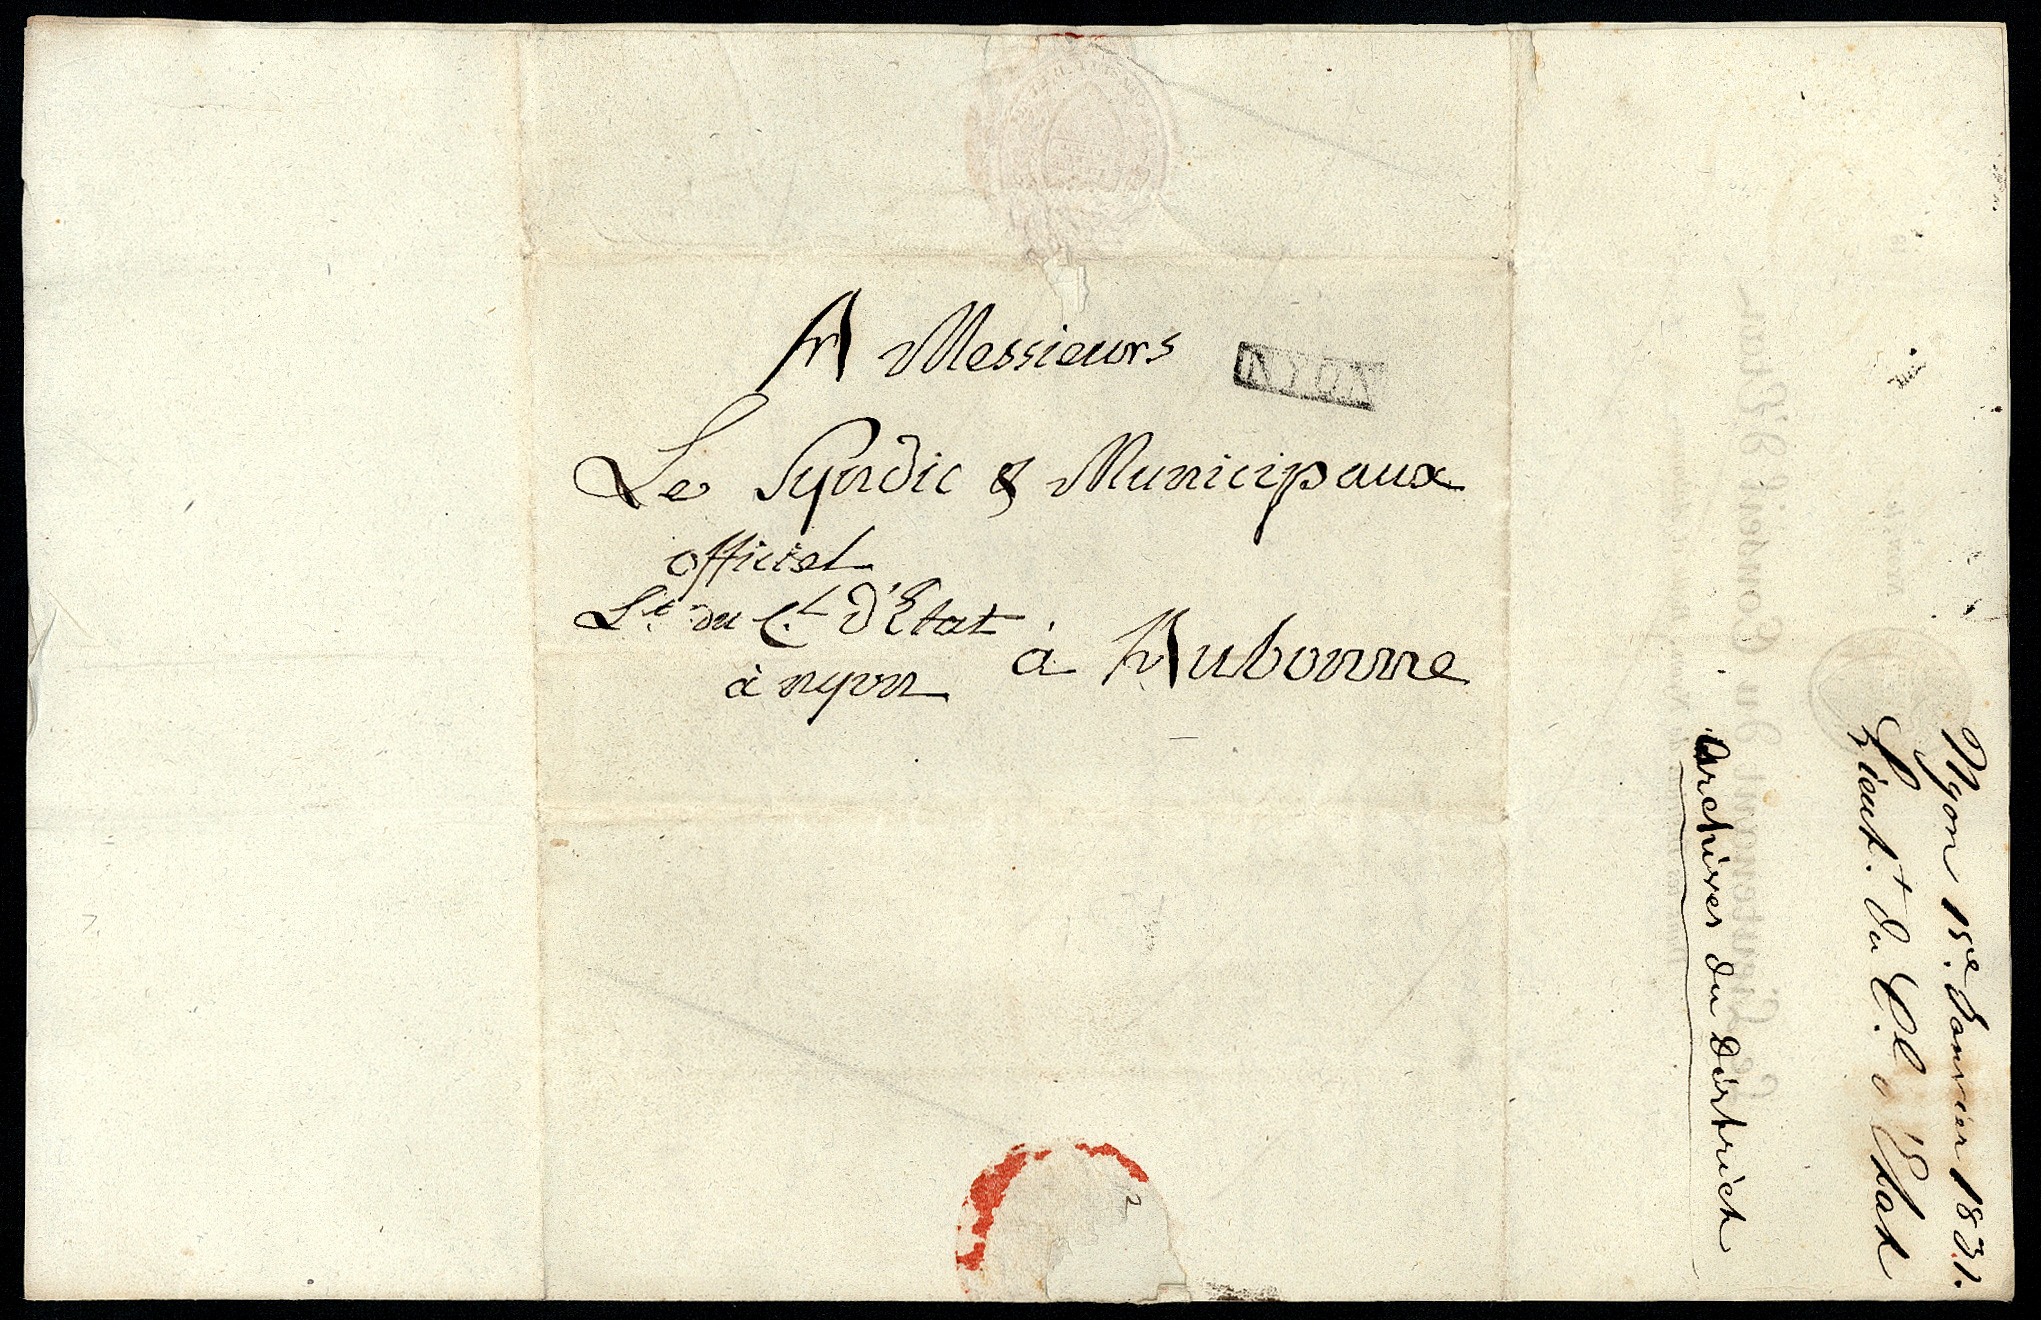 A Messieurs
NYON
Le Syndic & Municipaux
officiel
Lt. du C.l d'Etat
à nyon
à Aubonne
Nyon 15e. Janvier 1831.
Lieut.t du C.l d'Etat
Archives du District